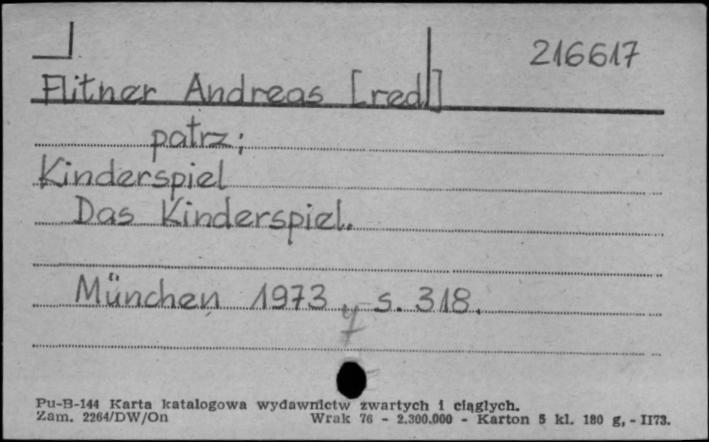 216617
Flitner Andreas [red]
patrz;
Kinderspiel
Das Kinderspiel.
München 1973, s. 318.
Pu-B-144 Karta katalogowa wydawnictw zwartych i ciągłych.
Zam. 2264/DW/On Wrak 76 - 2.300.000 - Karton 5 kl. 180 g, - II73.